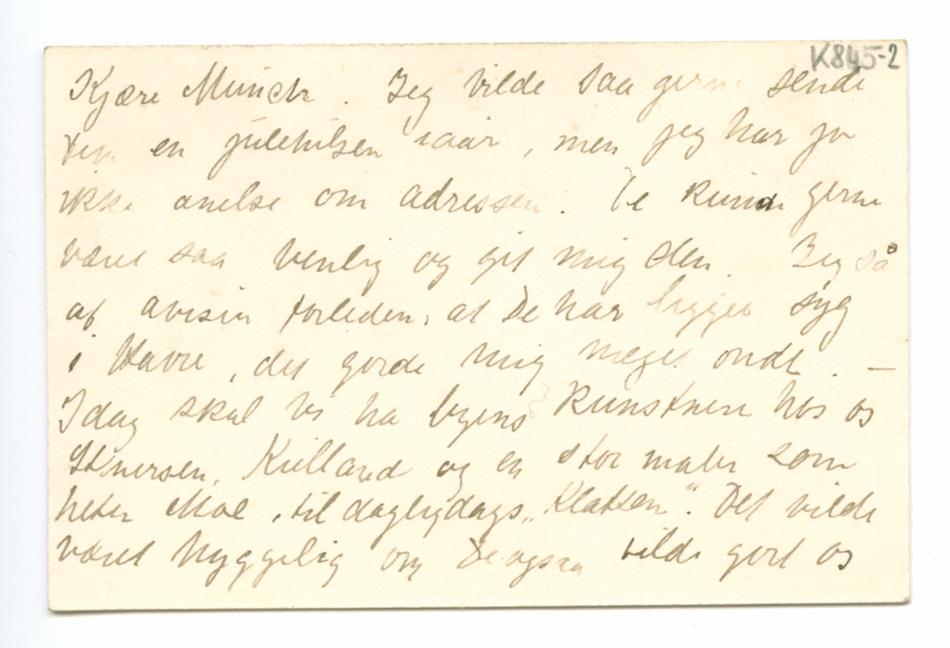 K845-2
Kjære Munch. Jeg vilde saa gerne sende
Dem en julehilsen iaar, men jeg har jo
ikke anelse om adressen. De kunde gerne
været saa venlig og git mig den. Jeg så
af avisen forleden, at De har ligget syg
i Havre, det gorde mig meget ondt. —
Idag skal vi ha byens kunstnere hos os
Stinersen, Kielland og en stor maler som
heter Moe, til daglydags „Klatten". Det vilde
været hyggelig om De ogsaa vilde gort os